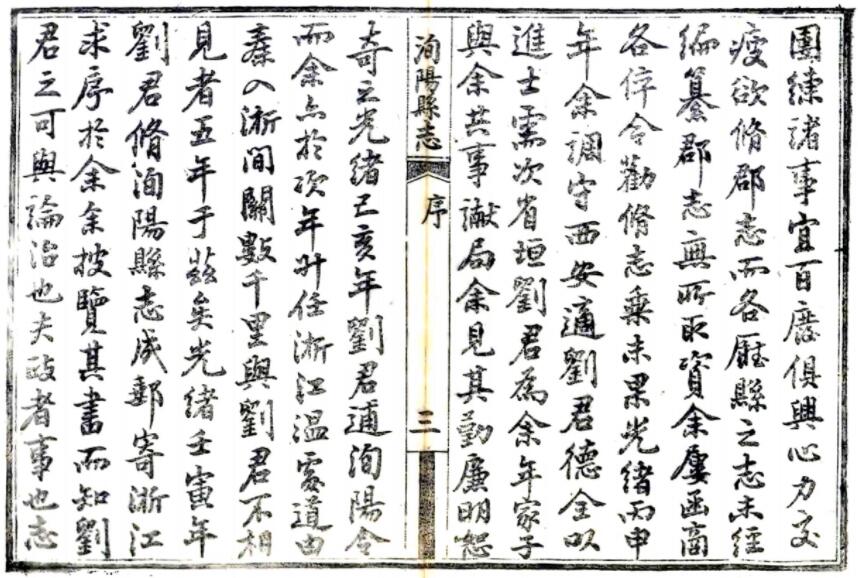 團練諸事宜百廢俱興心力交
瘦欲脩郡志而各屬縣之志未經
編纂郡志無所取資余屢函商
各倅令勸脩志乘未果光緒丙申
年余調守西安適劉君德全以
進士需次省垣劉君爲余年家子
與余共事讞局余見其勤廉明恕
洵陽縣志
序
三
大奇之光緒己亥年劉君補洵陽令
而余亦於次年升任浙江溫處道由
秦入浙間關數千里與劉君不相
見者五年于茲矣光緒壬寅年
劉君脩洵陽縣志成郵寄浙江
求序於余余披覽其書而知劉
君之可與論治也夫政者事也志